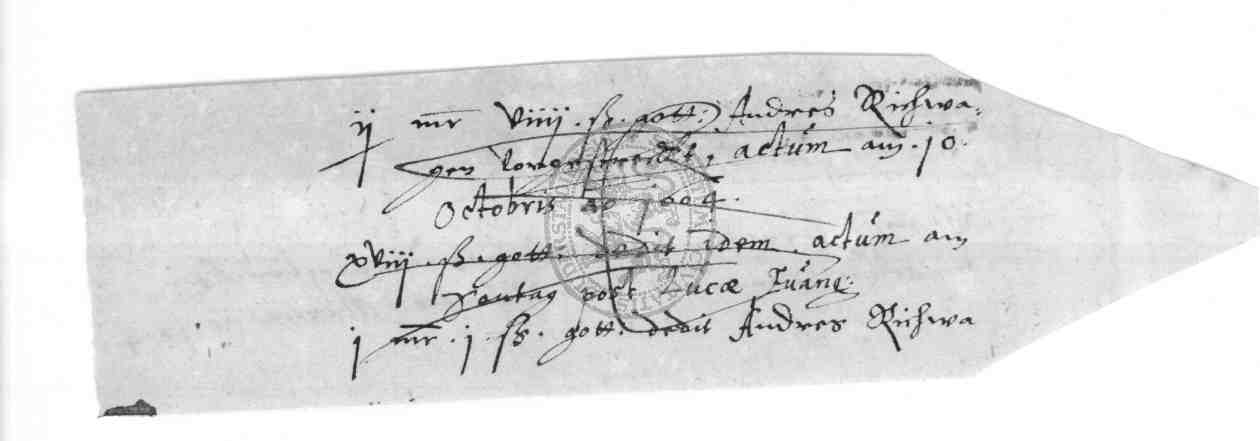 ij mr viiij. ß. gott: Andres Richwa-
gen, actum am. 10.
Octobris ao 1604.
xviij. ß. gott: dedit idem actum am
Montag post Lucæ Evang:
j mr. j. ß. gott: dedit Andres Richwa